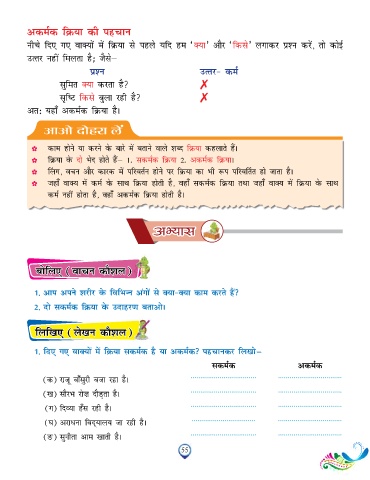 अकर्मक क्रिया की पहचान
नीचे दिए गए वाक्यों में क्रिया से पहले यदि हम 'क्या' और 'किसे' लगाकर प्रश्न करें, तो कोई
उत्तर नहीं मिलता है; जैसे–
प्रश्न उत्तर- कर्म
सुमित क्या करता है? ✗
सृष्टि किसे बुला रही है? ✗
अतः यहाँ अकर्मक क्रिया है।
आओ दोहरा लें
काम होने या करने के बारे में बताने वाले शब्द क्रिया कहलाते हैं।
क्रिया के दो भेद होते हैं– 1. सकर्मक क्रिया 2. अकर्मक क्रिया।
लिंग, वचन और कारक में परिवर्तन होने पर क्रिया का भी रूप परिवर्तित हो जाता है।
जहाँ वाक्य में कर्म के साथ क्रिया होती है, वहाँ सकर्मक क्रिया तथा जहाँ वाक्य में क्रिया के साथ
कर्म नहीं होता है, वहाँ अकर्मक क्रिया होती है।
अभ्यास
बोलिए (वाचन कौशल)
1. आप अपने शरीर के विभिन्न अंगों से क्या-क्या काम करते हैं?
2. दो सकर्मक क्रिया के उदाहरण बताओ।
लिखिए (लेखन कौशल)
1. दिए गए वाक्यों में क्रिया सकर्मक है या अकर्मक? पहचानकर लिखो–
सकर्मक अकर्मक
(क) राजू बाँसुरी बजा रहा है। ........................ ........................
(ख) सौरभ रोज़ दौड़ता है। ........................ ........................
(ग) दिव्या हँस रही है। ........................ ........................
(घ) अराधना विद्यालय जा रही है। ........................ ........................
(ङ) सुनीता आम खाती है। ........................ ........................
55